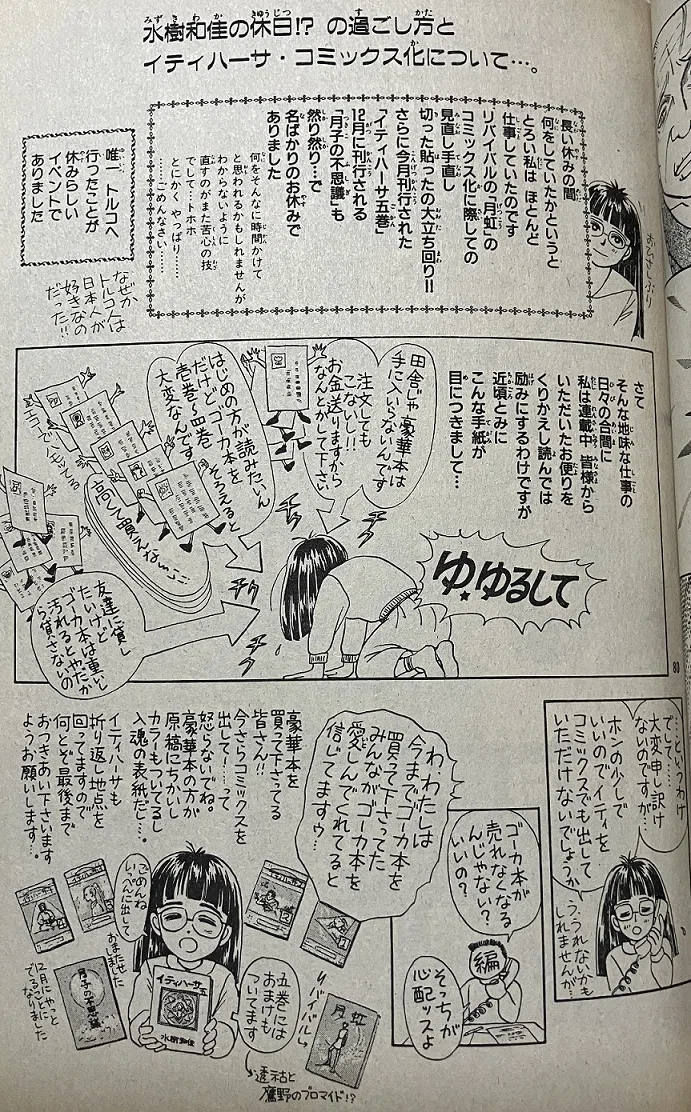 水樹和佳の休日!? の過ごし方と
イティハーサ・コミックス化について…。
長い休みの間
何をしていたかというと
とろい私は ほとんど
仕事していたのです
リバイバルの「月虹」の
コミックス化に際しての
見直し手直し
切った貼ったの大立ち回り!!
さらに今月刊行された
「イティハーサ五巻」
12月に刊行される
「月子の不思議」も
然り然り…で
名ばかりのお休みで
ありました
何をそんなに時間かけて
と思われるかもしれませんが
わからないように
直すのがまた苦心の技
でして…トホホ
とにかく やっぱり……
……ごめんなさい……
おひさしぶり
唯一 トルコへ
行ったことが
休みらしい
イベントで
ありました
なぜか
トルコ人は
日本人が
好きなの
だった!!
さて
そんな地味な仕事の
日々の合間に
私は連載中 皆様から
いただいたお便りを
くりかえし読んでは
励みにするわけですが
近頃とみに
こんな手紙が
目につきまして…
田舎じゃ豪華本は
手に入らないんです
注文しても
こないし!!
お金送りますから
なんとかして下さい
はじめの方が読みたいん
だけど ゴーカ本を
壱巻〜四巻 そろえると
大変なんです
高くて買えな〜い
友達に貸し
たいけど
ゴーカ本は重いし
汚れるとやだか
ら貸さないの
チク
チク
チク
チク
ゆ、ゆるして
80
……というわけ
でして……
大変申し訳け
ないのですが…
ホンの少しで
いいのでイティを
コミックスでも出して
いただけないでしょうか
う、うれないかも
しれませんが…
ゴーカ本が
売れなくなる
んじゃない?
いいの?
編
そっちが
心配ッスよ
わ、わたしは
今までゴーカ本を
買って下さってた
みんながゴーカ本を
愛しんでくれてると
信じてますウ…
豪華本を
買って下さってる
皆さん!!
今さらコミックスを
出して!…って
怒らないでね。
豪華本の方が
原稿にちかいし
カラーもついてるし
入魂の表紙だし…。
イティハーサも
折り返し地点を
回ってますので
何とぞ最後まで
おつきあい下さいます
ようお願いします…。
ごめんね
いっぺんに出して
おまたせ
しました
月子の不思議
12月にやっと
でることに
なりました
イティハーサ五
水樹和佳
五巻には
おまけも
ついてます
透祜と
鷹野のブロマイド!?
リバイバル
月虹